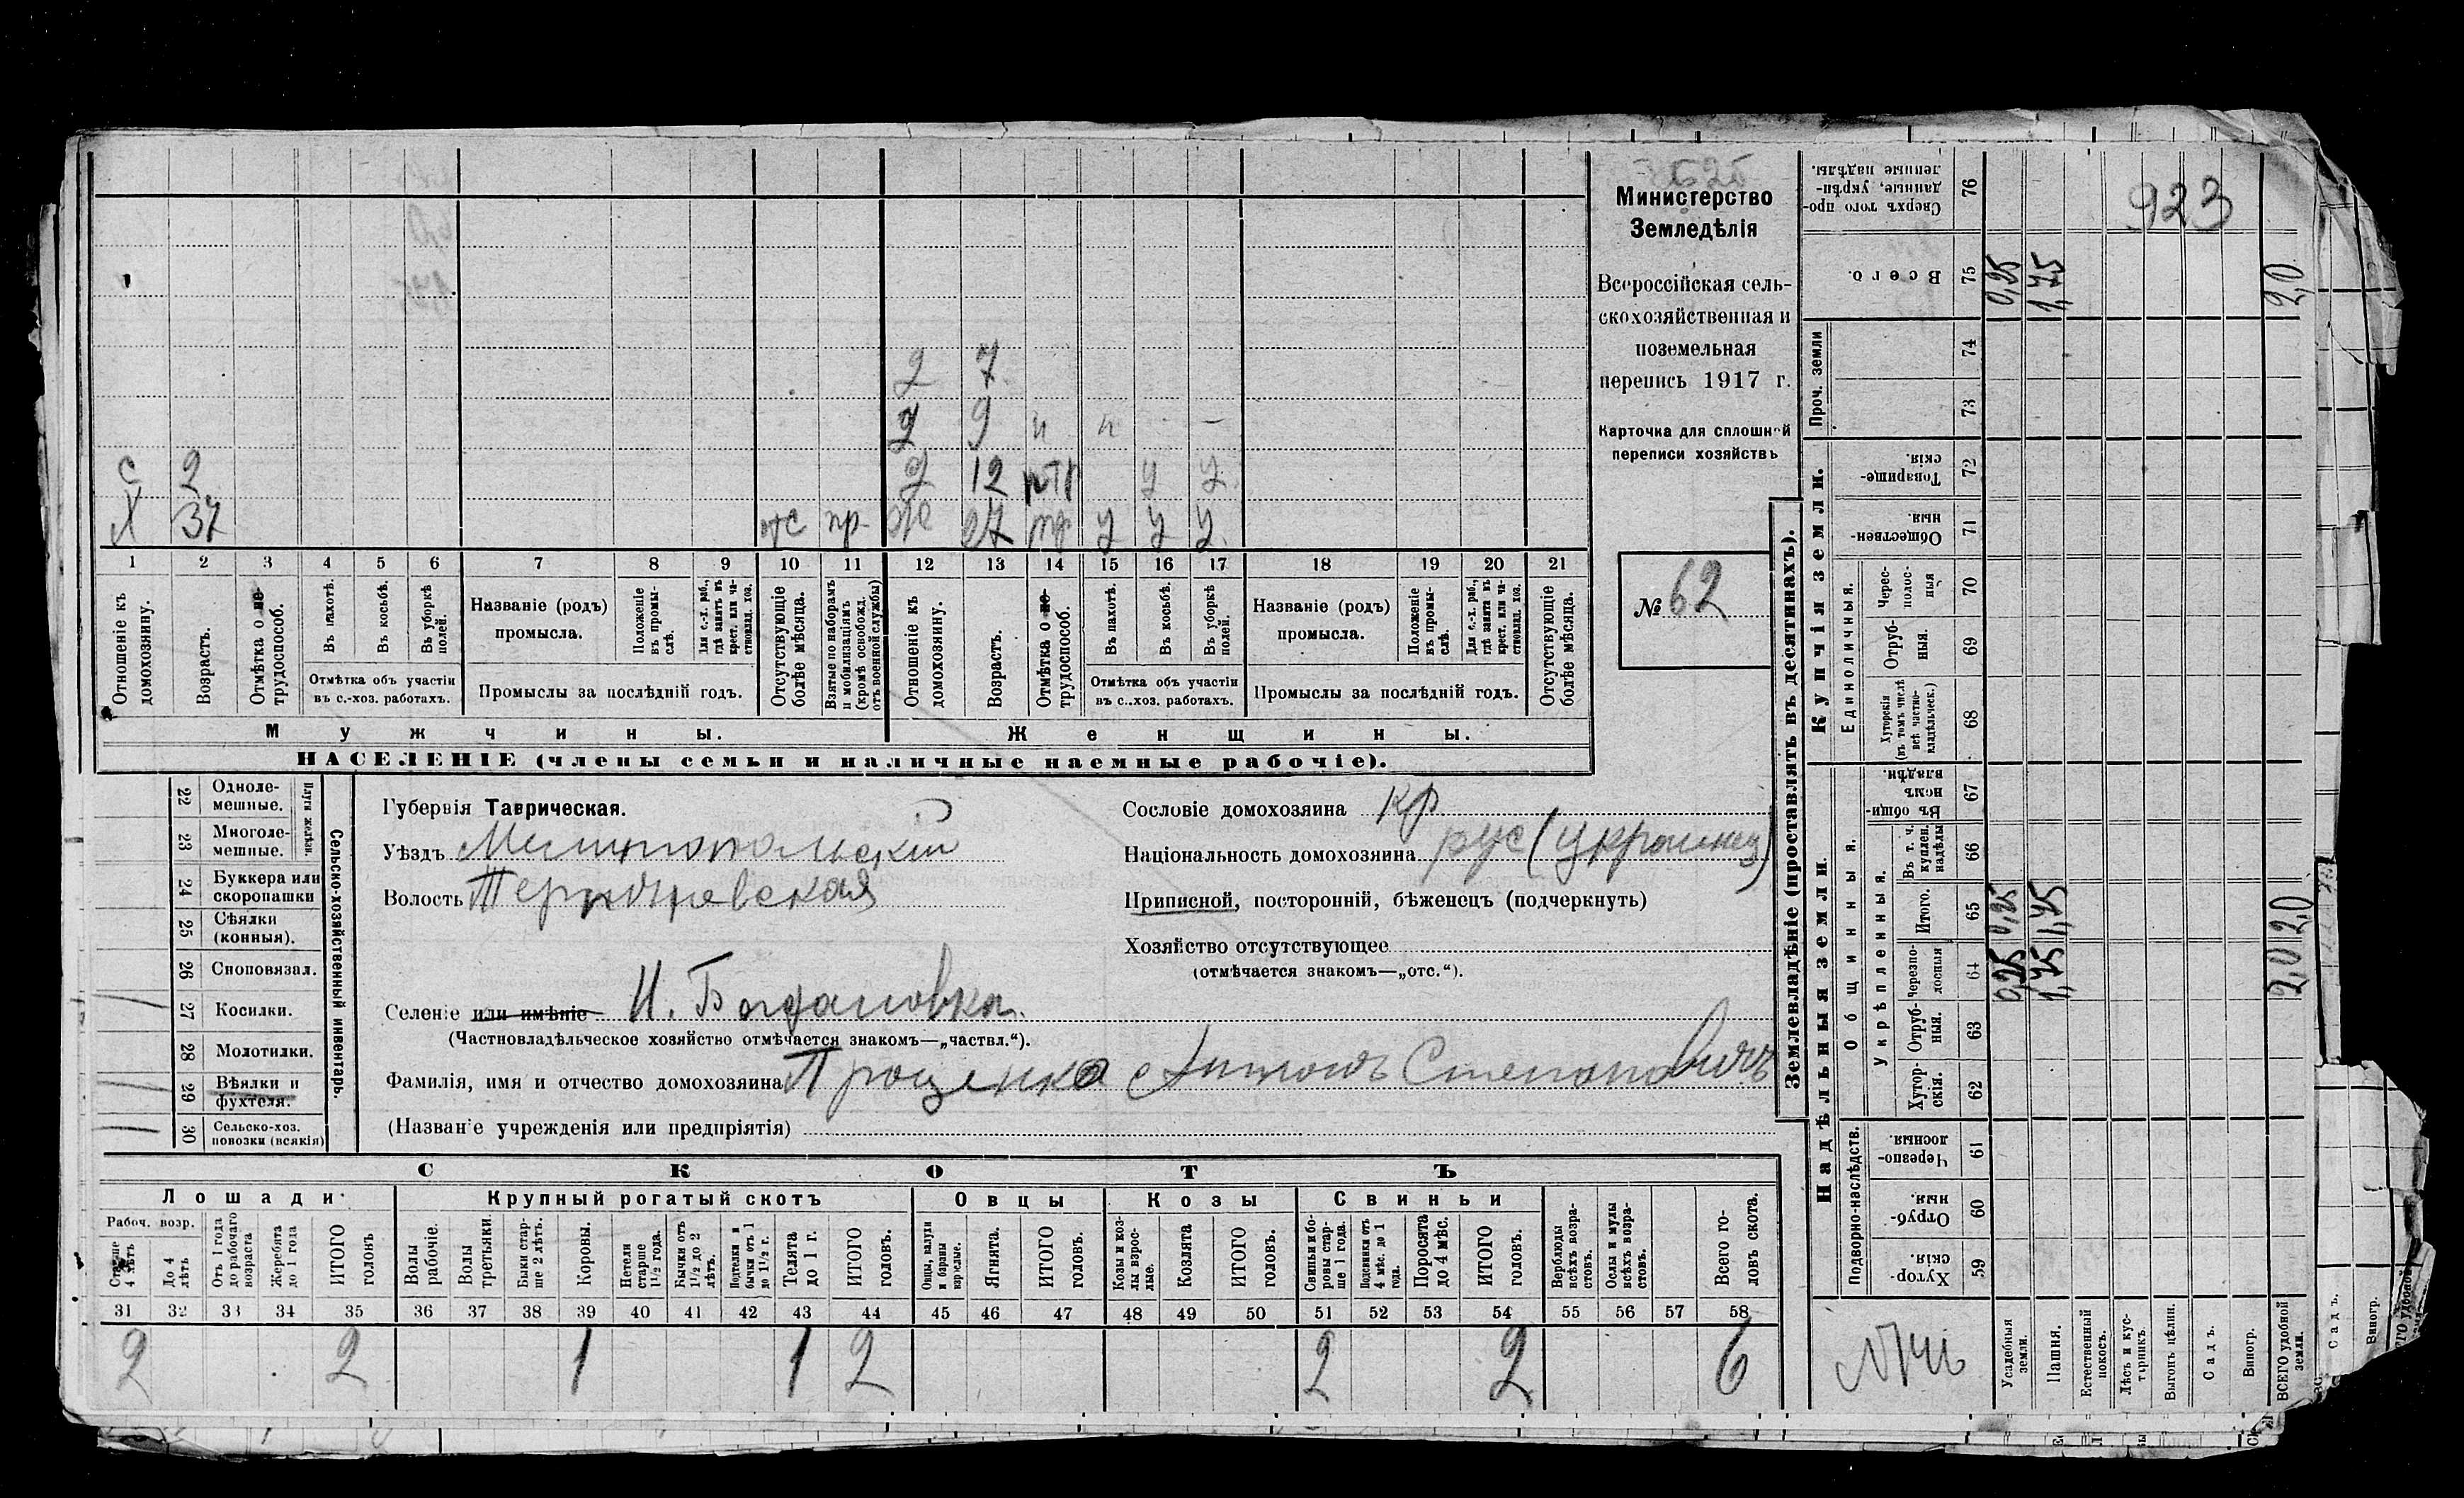 923
Министерство
Земледѣлія
Всероссійская сель-
скохозяйственная и
поземельная
перепись 1917 г.
Карточка для сплошной
переписи хозяйствъ
№ 62
д 7
д 9 н н -
с 2 д 12 у у
х 37 отс пр. ж 27 у у у
1 2 3 4 5 6 7 8 9 10 11 12 13 14 15 16 17 18 19 20 21
Отношеніе къ домохозяину.
Возрастъ.
Отмѣтка о не-трудоспособ.
Въ пахотѣ.
Въ косьбѣ.
Въ уборкѣ полей.
Отмѣтка объ участіи
въ с.-хоз. работахъ.
Названіе (родъ)
промысла.
Положеніе въ промыслѣ.
Для с.-х. раб., гдѣ занятъ въ крест. или частновлад. хоз.
Промыслы за послѣдній годъ.
Отсутствующіе болѣе мѣсяца.
Взятые по наборамъ и мобилизаціямъ (кромѣ освобожд. отъ военной службы)
Отношеніе къ домохозяину.
Возрастъ.
Отмѣтка о не-трудоспособ.
Въ пахотѣ.
Въ косьбѣ.
Въ уборкѣ полей.
Отмѣтка объ участіи
въ с.-хоз. работахъ.
Названіе (родъ)
промысла.
Положеніе въ промыслѣ.
Для с.-х. раб., гдѣ занята въ крест. или частновлад. хоз.
Промыслы за послѣдній годъ.
Отсутствующіе болѣе мѣсяца.
Мужчины. Женщины.
НАСЕЛЕНІЕ (члены семьи и наличные наемные рабочіе).
Сельско-хозяйственный инвентарь.
Плуги желѣзн.
22 Одноле-мешные.
23 Многоле-мешные.
24 Буккера или скоропашки
25 Сѣялки (конныя).
26 Сноповязал.
27 Косилки.
28 Молотилки.
29 Вѣялки и фухтеля.
30 Сельско-хоз. повозки (всякія)
Губернія Таврическая.
Уѣздъ Мелитопольскій
Волость
Селеніе или имѣніе Н. Богдановка.
(Частновладѣльческое хозяйство отмѣчается знакомъ—„частвл.“).
Фамилія, имя и отчество домохозяина Проценко Антонъ Степановичъ
(Названіе учрежденія или предпріятія)
Сословіе домохозяина кр
Національность домохозяина рус (украинец)
Приписной, посторонній, бѣженецъ (подчеркнуть)
Хозяйство отсутствующее
(отмѣчается знакомъ—„отс.“).
СКОТЪ
Лошади Крупный рогатый скотъ Овцы Козы Свиньи
Рабоч. возр.
Старше 4 лѣтъ
До 4 лѣтъ
Отъ 1 года до рабочаго возраста
Жеребята до 1 года
ИТОГО головъ
Волы рабочіе.
Волы третьяки.
Быки старше 2 лѣтъ.
Коровы.
Нетели старше 1½ года.
Бычки отъ 1½ до 2 лѣтъ.
Подтелки и бычки отъ 1 до 1½ г.
Телята до 1 г.
ИТОГО головъ.
Овцы, валухи и бараны взрослые.
Ягнята.
ИТОГО головъ.
Козы и козлы взрослые.
Козлята
ИТОГО головъ.
Свиньи и боровы старше 1 года.
Подсвинки отъ 4 мѣс. до 1 года.
Поросята до 4 мѣс.
ИТОГО головъ.
Верблюды всѣхъ возрастовъ.
Ослы и мулы всѣхъ возрастовъ.
Всего головъ скота.
31 32 33 34 35 36 37 38 39 40 41 42 43 44 45 46 47 48 49 50 51 52 53 54 55 56 57 58
2 2 1 1 2 2 2 6
Землевладѣніе (проставлять въ десятинахъ).
Надѣльныя земли. Купчія земли. Проч. земли
Подворно-наслѣдств. Общинныя. Единоличныя.
Укрѣпленныя.
Хуторскія. 59
Отрубныя. 60
Черезполосныя. 61
Хуторскія. 62
Отрубныя. 63
Черезполосныя 64 0,25 1,75 2,0
Итого. 65 0,25 1,75 2,0
Въ т. ч. куплен. надѣлы 66
Въ общинномъ владѣн. 67
Хуторскія (въ томъ числѣ всѣ частновладѣльческ.) 68
Отрубныя. 69
Черезполосныя 70
Общественныя. 71
Товарищескія. 72
73
74
Всего. 75 0,25 1,75 2,0
Сверхъ того проданные, укрѣпленные надѣлы. 76
Усадебныя земли.
Пашня.
Естественный покосъ.
Лѣсъ и кустарникъ.
Выгонъ цѣлин.
Садъ.
Виногр.
ВСЕГО удобной земли.
Садъ.
Виногр.